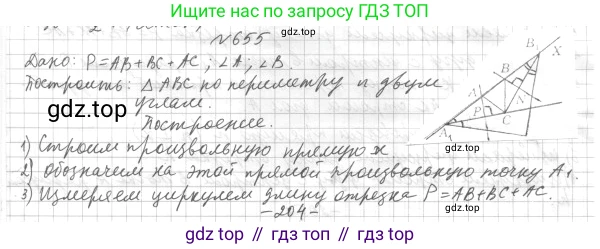 Ищите нас по запросу ГДЗ ТОП
№655
Дано: P=AB+BC+AC; ∠A; ∠B.
Построить: △ABC по периметру и двум
углам.
gdz.top
Построение.
1) Строим произвольную прямую x
gdz.top
2) Обозначим на этой прямой произвольную точку A₁.
3) Измеряем циркулем длину отрезка P=AB+BC+AC.
-204-
gdz.top // gdz.top // gdz.top